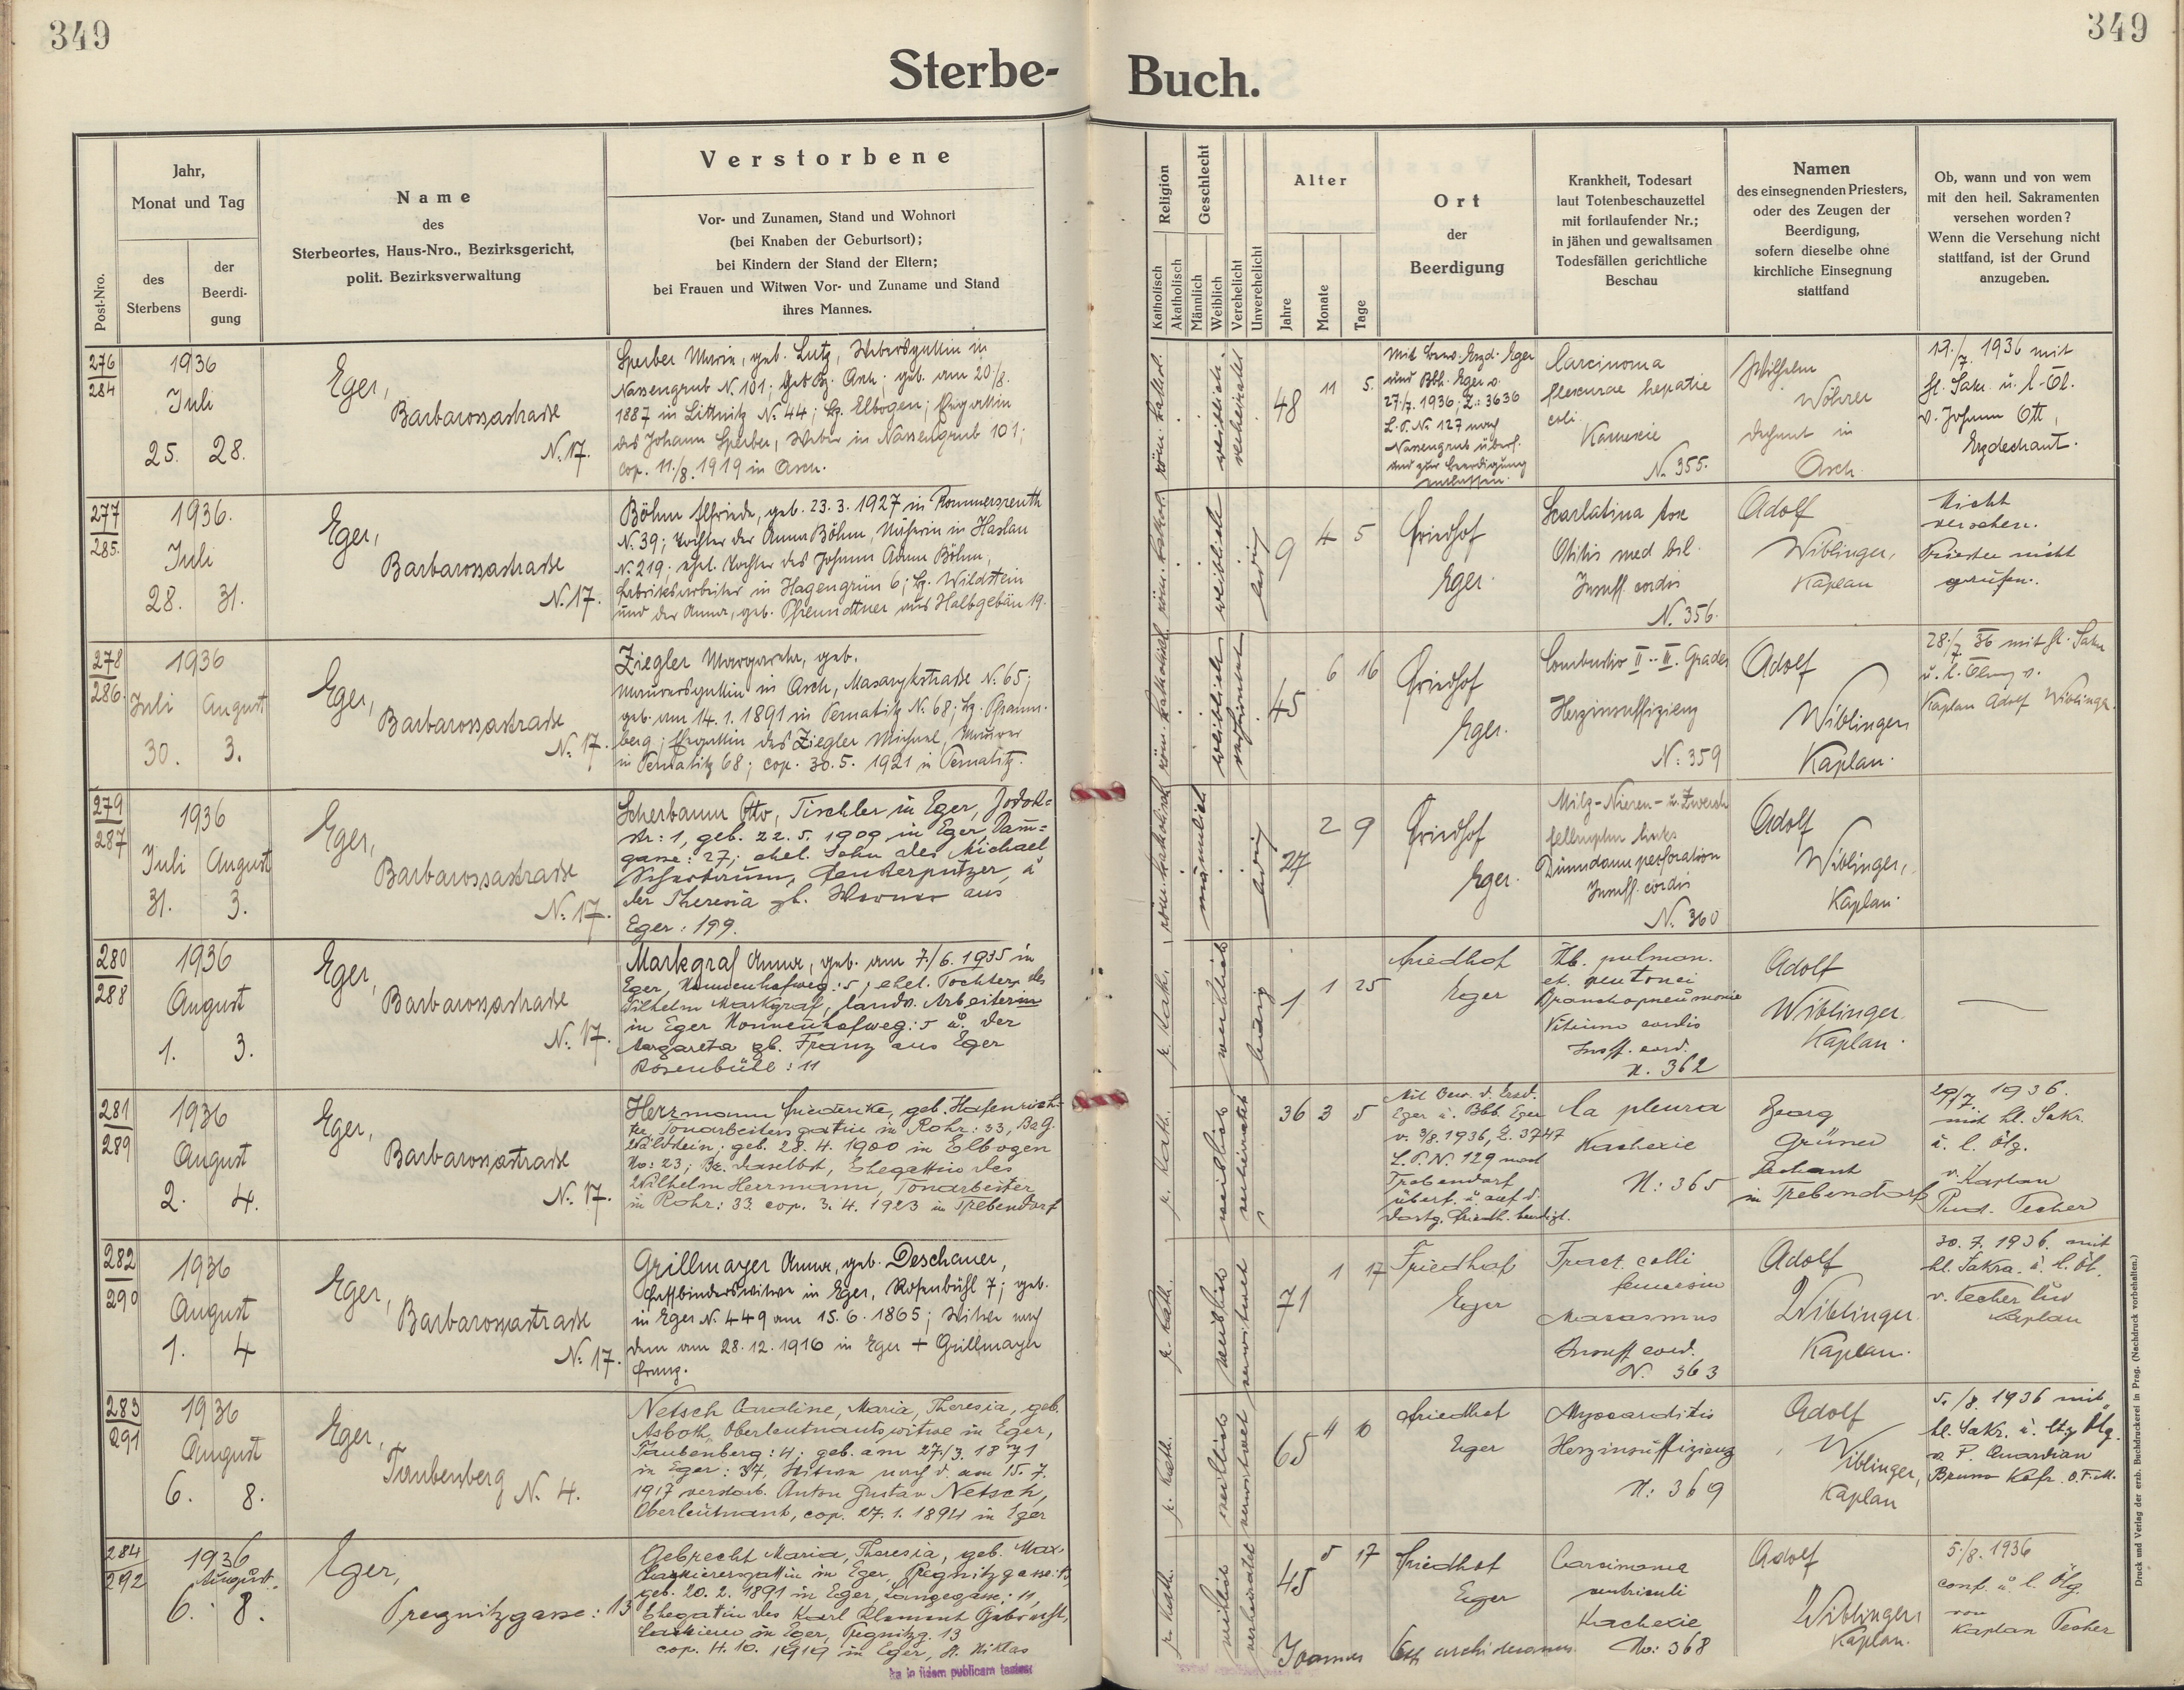 349
349
Sterbe-
Buch.
Post-Nro.
Jahr,
Monat und Tag
des
Sterbens
der
Beerdi-
gung
Name
des
Sterbeortes, Haus-Nro., Bezirksgericht,
polit. Bezirksverwaltung
Verstorbene
Vor- und Zunamen, Stand und Wohnort
(bei Knaben der Geburtsort);
bei Kindern der Stand der Eltern;
bei Frauen und Witwen Vor- und Zuname und Stand
ihres Mannes.
Religion
Katholisch
Akatholisch
Geschlecht
Männlich
Weiblich
Verehelicht
Unverehelicht
Alter
Jahre
Monate
Tage
Ort
der
Beerdigung
Krankheit, Todesart
laut Totenbeschauzettel
mit fortlaufender Nr.;
in jähen und gewaltsamen
Todesfällen gerichtliche
Beschau
Namen
des einsegnenden Priesters,
oder des Zeugen der
Beerdigung,
sofern dieselbe ohne
kirchliche Einsegnung
stattfand
Ob, wann und von wem
mit den heil. Sakramenten
versehen worden?
Wenn die Versehung nicht
stattfand, ist der Grund
anzugeben.
276
284
1936
Juli
25. 28.
Eger,
Barbarossastraße
N. 17.
Sperber Marie, geb. Lutz, Webersgattin in
Nassengrub N. 101; Gbz. Asch; geb. am 20/8.
1887 in Littnitz N. 44; Bz. Elbogen; Ehegattin
des Johann Sperber, Weber in Nassengrub 101;
cop. 11./8. 1919 in Asch.
röm. kathol.
weiblich
verheiratet
48 11 5
Mit Bew. Erzd. Eger
und Bbh. Eger v.
27/7. 1936; Z.: 3636
L.P. N. 127 nach
Nassengrub überf.
und zur Beerdigung
entlassen.
Carcinoma
flexurae hepatic
coli
Kachexie
N. 355.
Wilhelm
Wöhrer
Dechant in
Asch.
19./7. 1936 mit
hl. Sakr. u. l. Öl.
v. Johann Ott,
Erzdechant.
277
285.
1936.
Juli
28. 31.
Eger,
Barbarossastraße
N. 17.
Böhm Elfriede, geb. 23. 3. 1927 in Rommersreuth
N. 39; Tochter der Anna Böhm, Näherin in Haslau
N. 219; ehel. Tochter des Johann Adam Böhm,
Fabriksarbeiter in Hagengrün 6; Bz. Wildstein
und der Anna, geb. aus Halbgebäu 19.
röm. kathol.
weiblich
ledig
9 4 5
Friedhof
Eger.
Scarlatina tox
Otitis med bil.
Insuff. cordis
N. 356.
Adolf
Wiblinger,
Kaplan
Nicht
versehen.
Priester nicht
gerufen.
278
286.
1936
Juli August
30. 3.
Eger,
Barbarossastraße
N. 17.
Ziegler Margareta, geb.
Maurersgattin in Asch, Masarykstraße N. 65;
geb. am 14. 1. 1891 in Pernatitz N. 68; Bz. Pfraum-
berg; Ehegattin des Ziegler Michael, Maurer
in Pernatitz 68; cop. 30. 5. 1921 in Pernatitz.
röm. katholisch
weiblich
verheiratet
45 6 16
Friedhof
Eger.
Combustio II-III. Grades
Herzinsuffizienz
N. 359
Adolf
Wiblinger
Kaplan.
28./7. 36 mit hl. Sakr.
u. l. Ölung v.
Kaplan Adolf Wiblinger.
279
287
1936
Juli August
31. 3.
Eger,
Barbarossastraße
N. 17.
Scherbaum Otto, Tischler in Eger, Jodok-
str: 1, geb. 22. 5. 1909 in Eger, Dam̄-
gasse: 27; ehel. Sohn des Michael
Scherbaum, Fensterputzer, u
der Theresia gb. Werner aus
Eger: 199.
röm. katholisch
männlich
ledig
27 2 9
Friedhof
Eger.
Milz-Nieren- u. Zwerch
fellruptur links
Dünndarmperforation
Insuff. cordis
N. 360
Adolf
Wiblinger,
Kaplan.
280
288
1936
August
1. 3.
Eger,
Barbarossastraße
N. 17.
Markgraf Anna, geb. am 7./6. 1935 in
Eger, Nonnenhofweg: 5, ehel. Tochter des
Wilhelm Markgraf, landw. Arbeiter
in Eger Nonnenhofweg: 5 u. der
Margareta gb. Franz aus Eger
Rosenbühl: 11
r. kath.
weiblich
ledig
1 1 25
Friedhof
Eger
Tb. pulmon.
et peritonei
Bronchopneumonie
Vitium cordis
Insuff. cord.
N. 362
Adolf
Wiblinger
Kaplan.
281
289
1936
August
2. 4.
Eger,
Barbarossastraße
N. 17.
Herrmann Friederike, geb. Hafenrich-
ter, Tonarbeitersgattin in Rohr: 33, Bez.
Wildstein; geb. 28. 4. 1900 in Elbogen
No: 23; Bz. daselbst, Ehegattin des
Wilhelm Herrmann, Tonarbeiter
in Rohr: 33. cop. 3. 4. 1923 in Trebendorf
r. kath.
weiblich
verheiratet
36 3 5
Mit Bew. d. Erzd.
Eger u. Bbh. Eger
v. 3/8. 1936, Z. 3747
L.P. N. 129 nach
Trebendorf
überf. u. auf d.
dortg. Friedh. beerdigt.
Ca pleura
Kachexie
N: 365
Georg
Grüner
Dechant
in Trebendorf
29/7. 1936.
mit hl. Sakr.
u. l. Ölg.
v. Kaplan
Rud. Pecher
282
290
1936
August
1. 4
Eger,
Barbarossastraße
N. 17.
Grillmayer Anna, geb. Deschauer,
Faßbinderswitwe in Eger, Rosenbühl 7; geb.
in Eger N. 449 am 15. 6. 1865; Witwe nach
dem am 28. 12. 1916 in Eger + Grillmayer
Franz.
r. kath.
weiblich
verwitwet
71 1 17
Friedhof
Eger
Fract. colli
femoris
Marasmus
Insuff cord.
N. 363
Adolf
Wiblinger
Kaplan.
30. 7. 1936. mit
hl. Sakra. u. l. Öl.
v. Pecher Rud
Kaplan
283
291
1936
August
6. 8.
Eger,
Taubenberg N. 4.
Netsch Caroline, Maria, Theresia, geb.
Asboth, Oberleutnantswitwe in Eger,
Taubenberg: 4; geb. am 27./3. 1871
in Eger: 37, Witwe nach d. am 15. 7.
1917 verstorb. Anton Gustav Netsch,
Oberleutnant, cop. 27. 1. 1894 in Eger
r. kath.
weiblich
verwitwet
65 4 10
Friedhof
Eger
Myocarditis
Herzinsuffizienz
N: 369
Adolf
Wiblinger,
Kaplan
5./8. 1936 mit
hl. Sakr. u. ltz Ölg.
v. P. Quardian
Bruno Kafr. O.F.M.
284
292
1936
August.
6. 8.
Eger,
Pregnitzgasse: 13
Gebrecht Maria, Theresia, geb. Max,
Kassierersgattin in Eger, Pregnitzgasse: 13,
geb. 20. 2. 1891 in Eger, Langegasse: 11,
Ehegatin des Karl Klement Gebrecht,
Kassierer in Eger, Pregnitzg. 13
cop. 4. 10. 1919 in Eger, St. Niklas
r. kath.
weiblich
verheiratet
45 5 17
Friedhof
Eger
Carcinoma
ventriculi
Kachexie
No: 368
Adolf
Wiblinger
Kaplan.
5./8. 1936
conf. u. l. Ölg.
von
Kaplan Pecher
Ioannes Ott archidecanus.
Druck und Verlag der erzb. Buchdruckerei in Prag. (Nachdruck vorbehalten.)